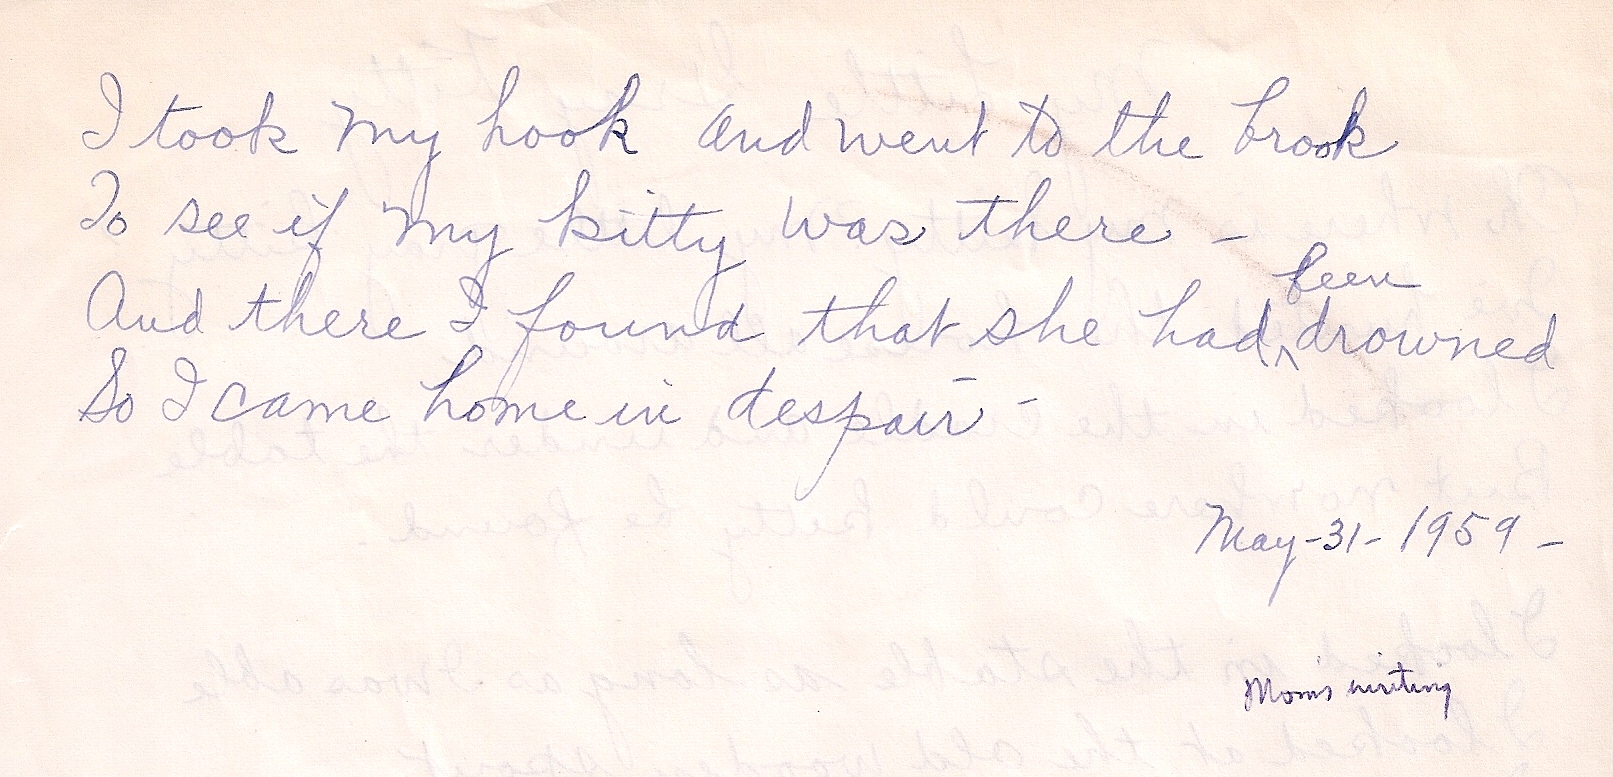 I took my hook and went to the brook
To see if my kitty was there -
And there I found that she had been drowned
So I came home in despair -
May-31-1959-
Mom's writing